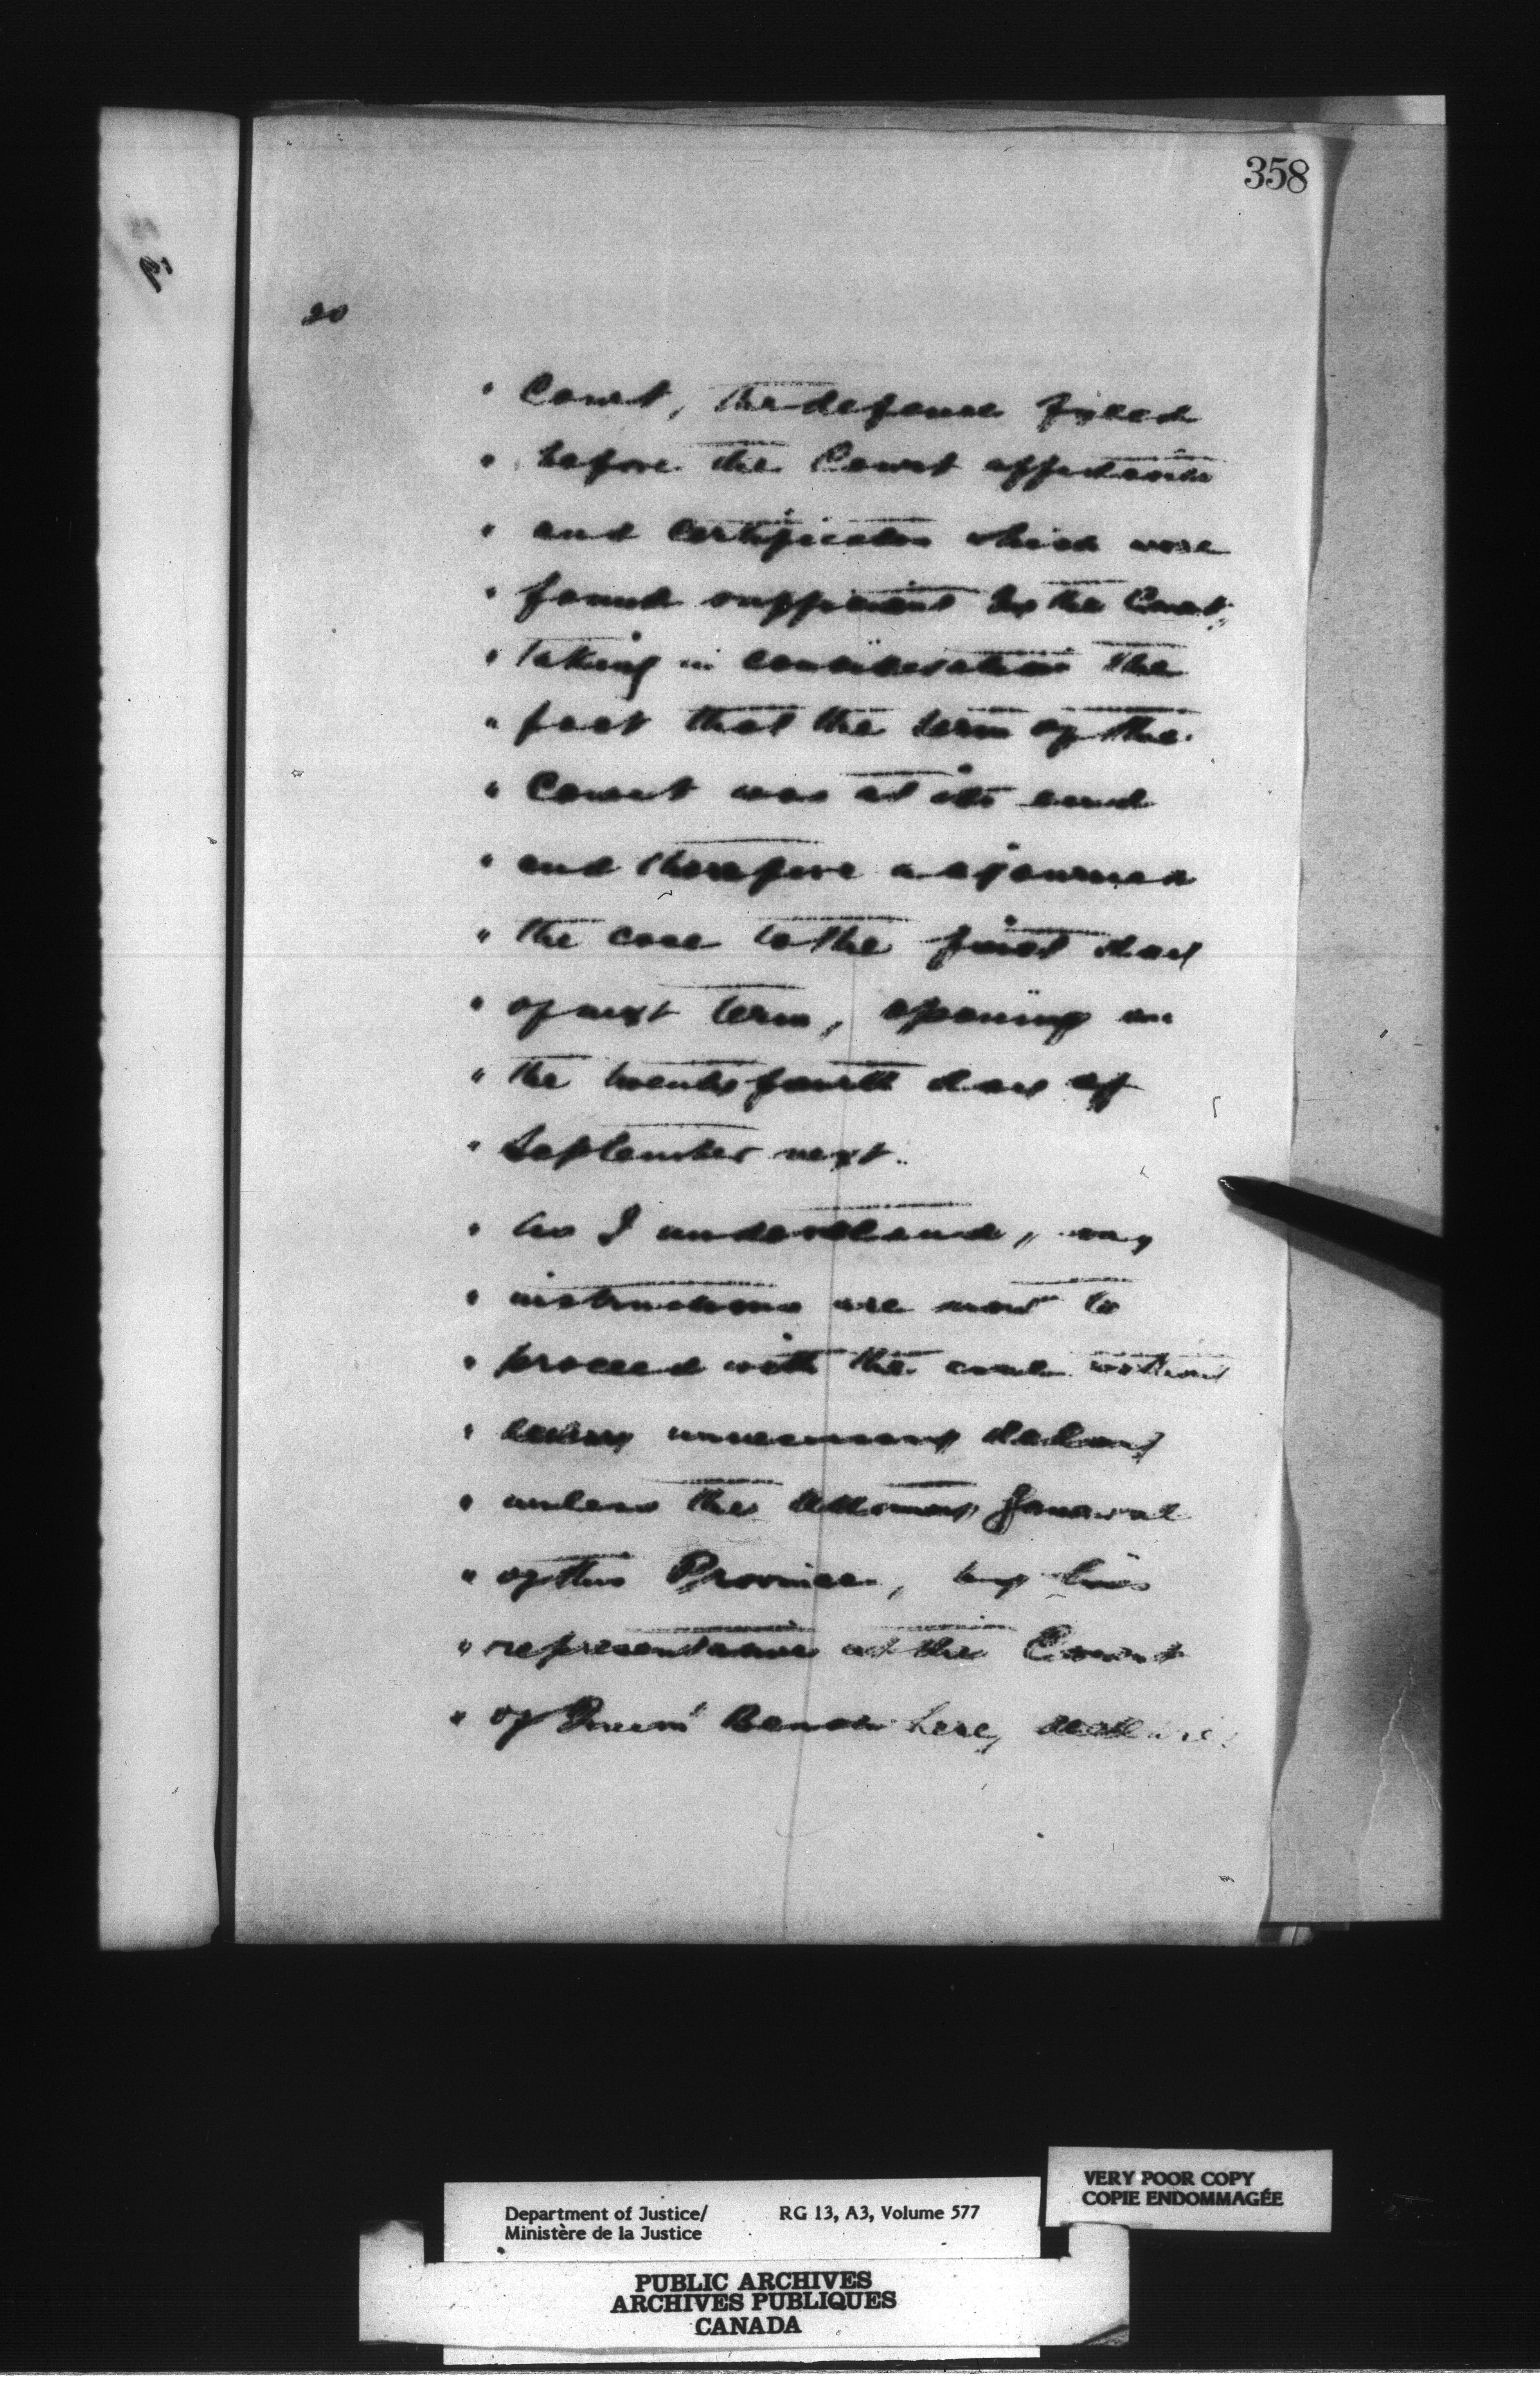 358
20
" Court, the defence fyled
" before the Court affidavits
" and certificates which were
" found sufficient by the Court,
" taking in consideration the
" fact that the term of the
" Court was at its end
" and therefore adjourned
" the case to the first day
" of next term, opening on
" the twenty fourth day of
" September next.
" As I understand, my
" instructions are now to
" proceed with the case without
" unnecessary delay
" unless the Attorney General
" of this Province, by his
" representative at the Court
" of Queens' Bench here, declares
VERY POOR COPY
COPIE ENDOMMAGÉE
Department of Justice/ RG 13, A3, Volume 577
Ministère de la Justice
PUBLIC ARCHIVES
ARCHIVES PUBLIQUES
CANADA